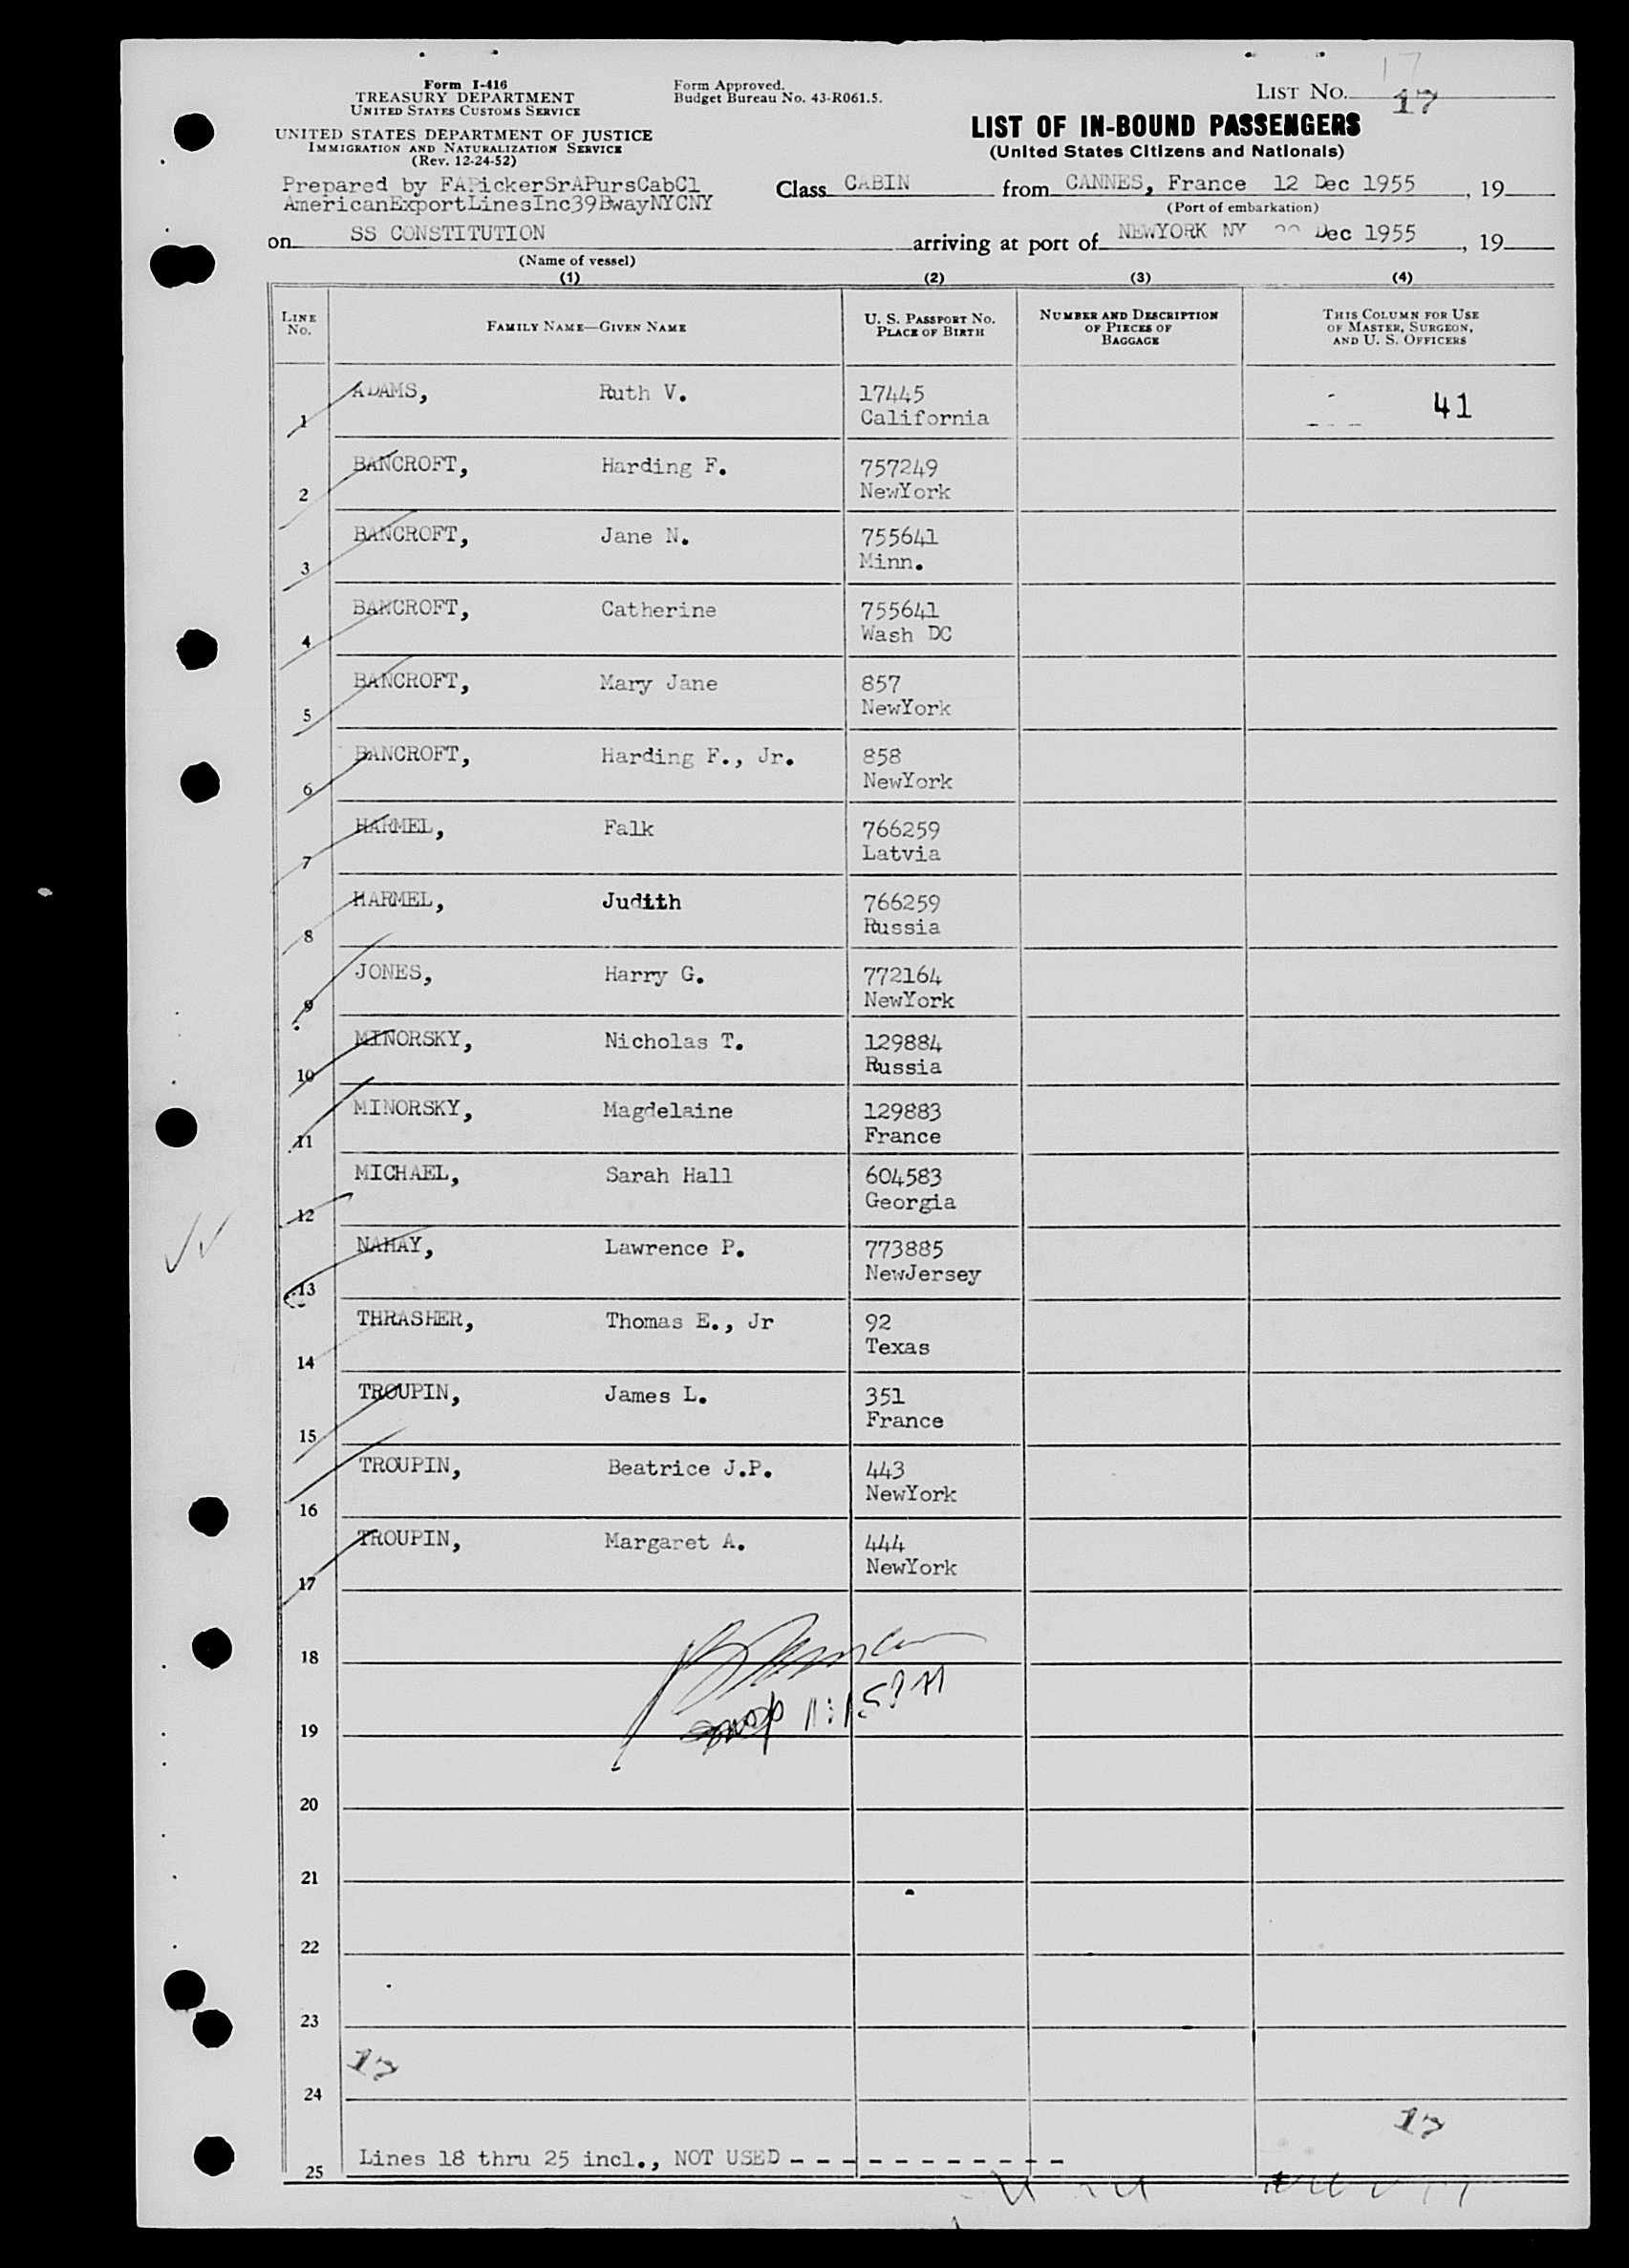 17
Form I-416
TREASURY DEPARTMENT
UNITED STATES CUSTOMS SERVICE
UNITED STATES DEPARTMENT OF JUSTICE
IMMIGRATION AND NATURALIZATION SERVICE
(Rev. 12-24-52)
Form Approved.
Budget Bureau No. 43-R061.5.
LIST No. 17
LIST OF IN-BOUND PASSENGERS
(United States Citizens and Nationals)
Prepared by FAPickerSrAPursCabCl
AmericanExportLinesInc39BwayNYCNY
Class CABIN from CANNES, France 12 Dec 1955, 19
(Port of embarkation)
on SS CONSTITUTION arriving at port of NEWYORK NY Dec 1955, 19
(Name of vessel)
(1) (2) (3) (4)
LINE No. FAMILY NAME—GIVEN NAME U. S. PASSPORT No. PLACE OF BIRTH NUMBER AND DESCRIPTION OF PIECES OF BAGGAGE THIS COLUMN FOR USE OF MASTER, SURGEON, AND U. S. OFFICERS
1 ADAMS, Ruth V. 17445 41
California
2 BANCROFT, Harding F. 757249
NewYork
3 BANCROFT, Jane N. 755641
Minn.
4 BANCROFT, Catherine 755641
Wash DC
5 BANCROFT, Mary Jane 857
NewYork
6 BANCROFT, Harding F., Jr. 858
NewYork
7 HARMEL, Falk 766259
Latvia
8 HARMEL, Judith 766259
Russia
9 JONES, Harry G. 772164
NewYork
10 MINORSKY, Nicholas T. 129884
Russia
11 MINORSKY, Magdelaine 129883
France
12 MICHAEL, Sarah Hall 604583
Georgia
13 NAHAY, Lawrence P. 773885
NewJersey
14 THRASHER, Thomas E., Jr 92
Texas
15 TROUPIN, James L. 351
France
16 TROUPIN, Beatrice J.P. 443
NewYork
17 TROUPIN, Margaret A. 444
NewYork
18
19
20
21
22
23
17
24
17
25 Lines 18 thru 25 incl., NOT USED - - - - - - - - - - -